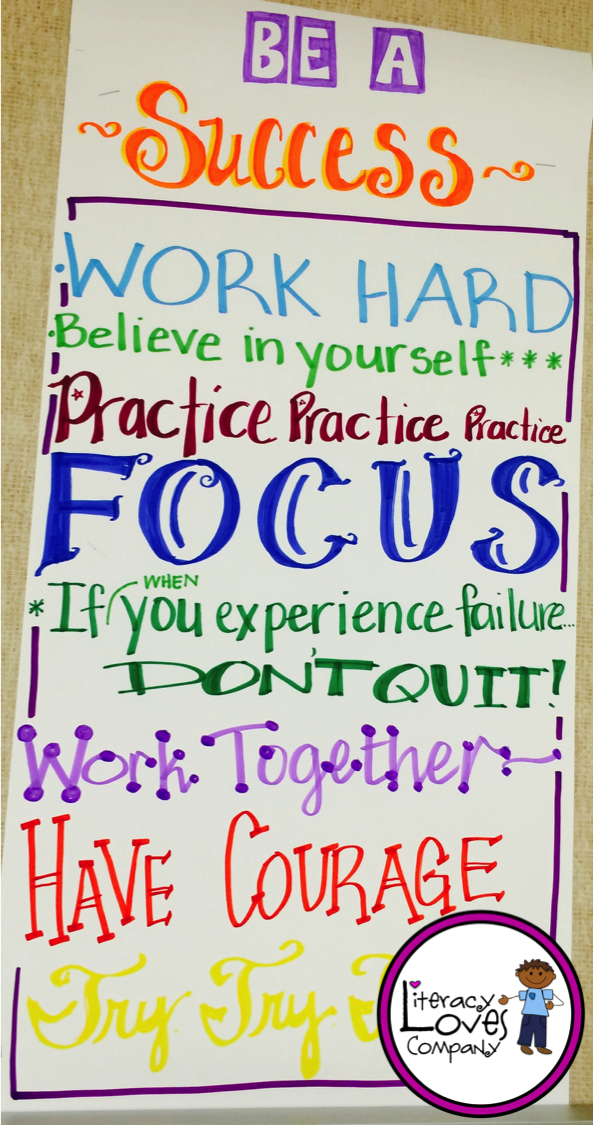 BE A
~Success~
·WORK HARD
·Believe in yourself***
Practice Practice Practice
FOCUS
WHEN
*If/you experience failure...
DON'T QUIT!
Work Together
HAVE COURAGE
Try Try
Literacy
Loves
Company